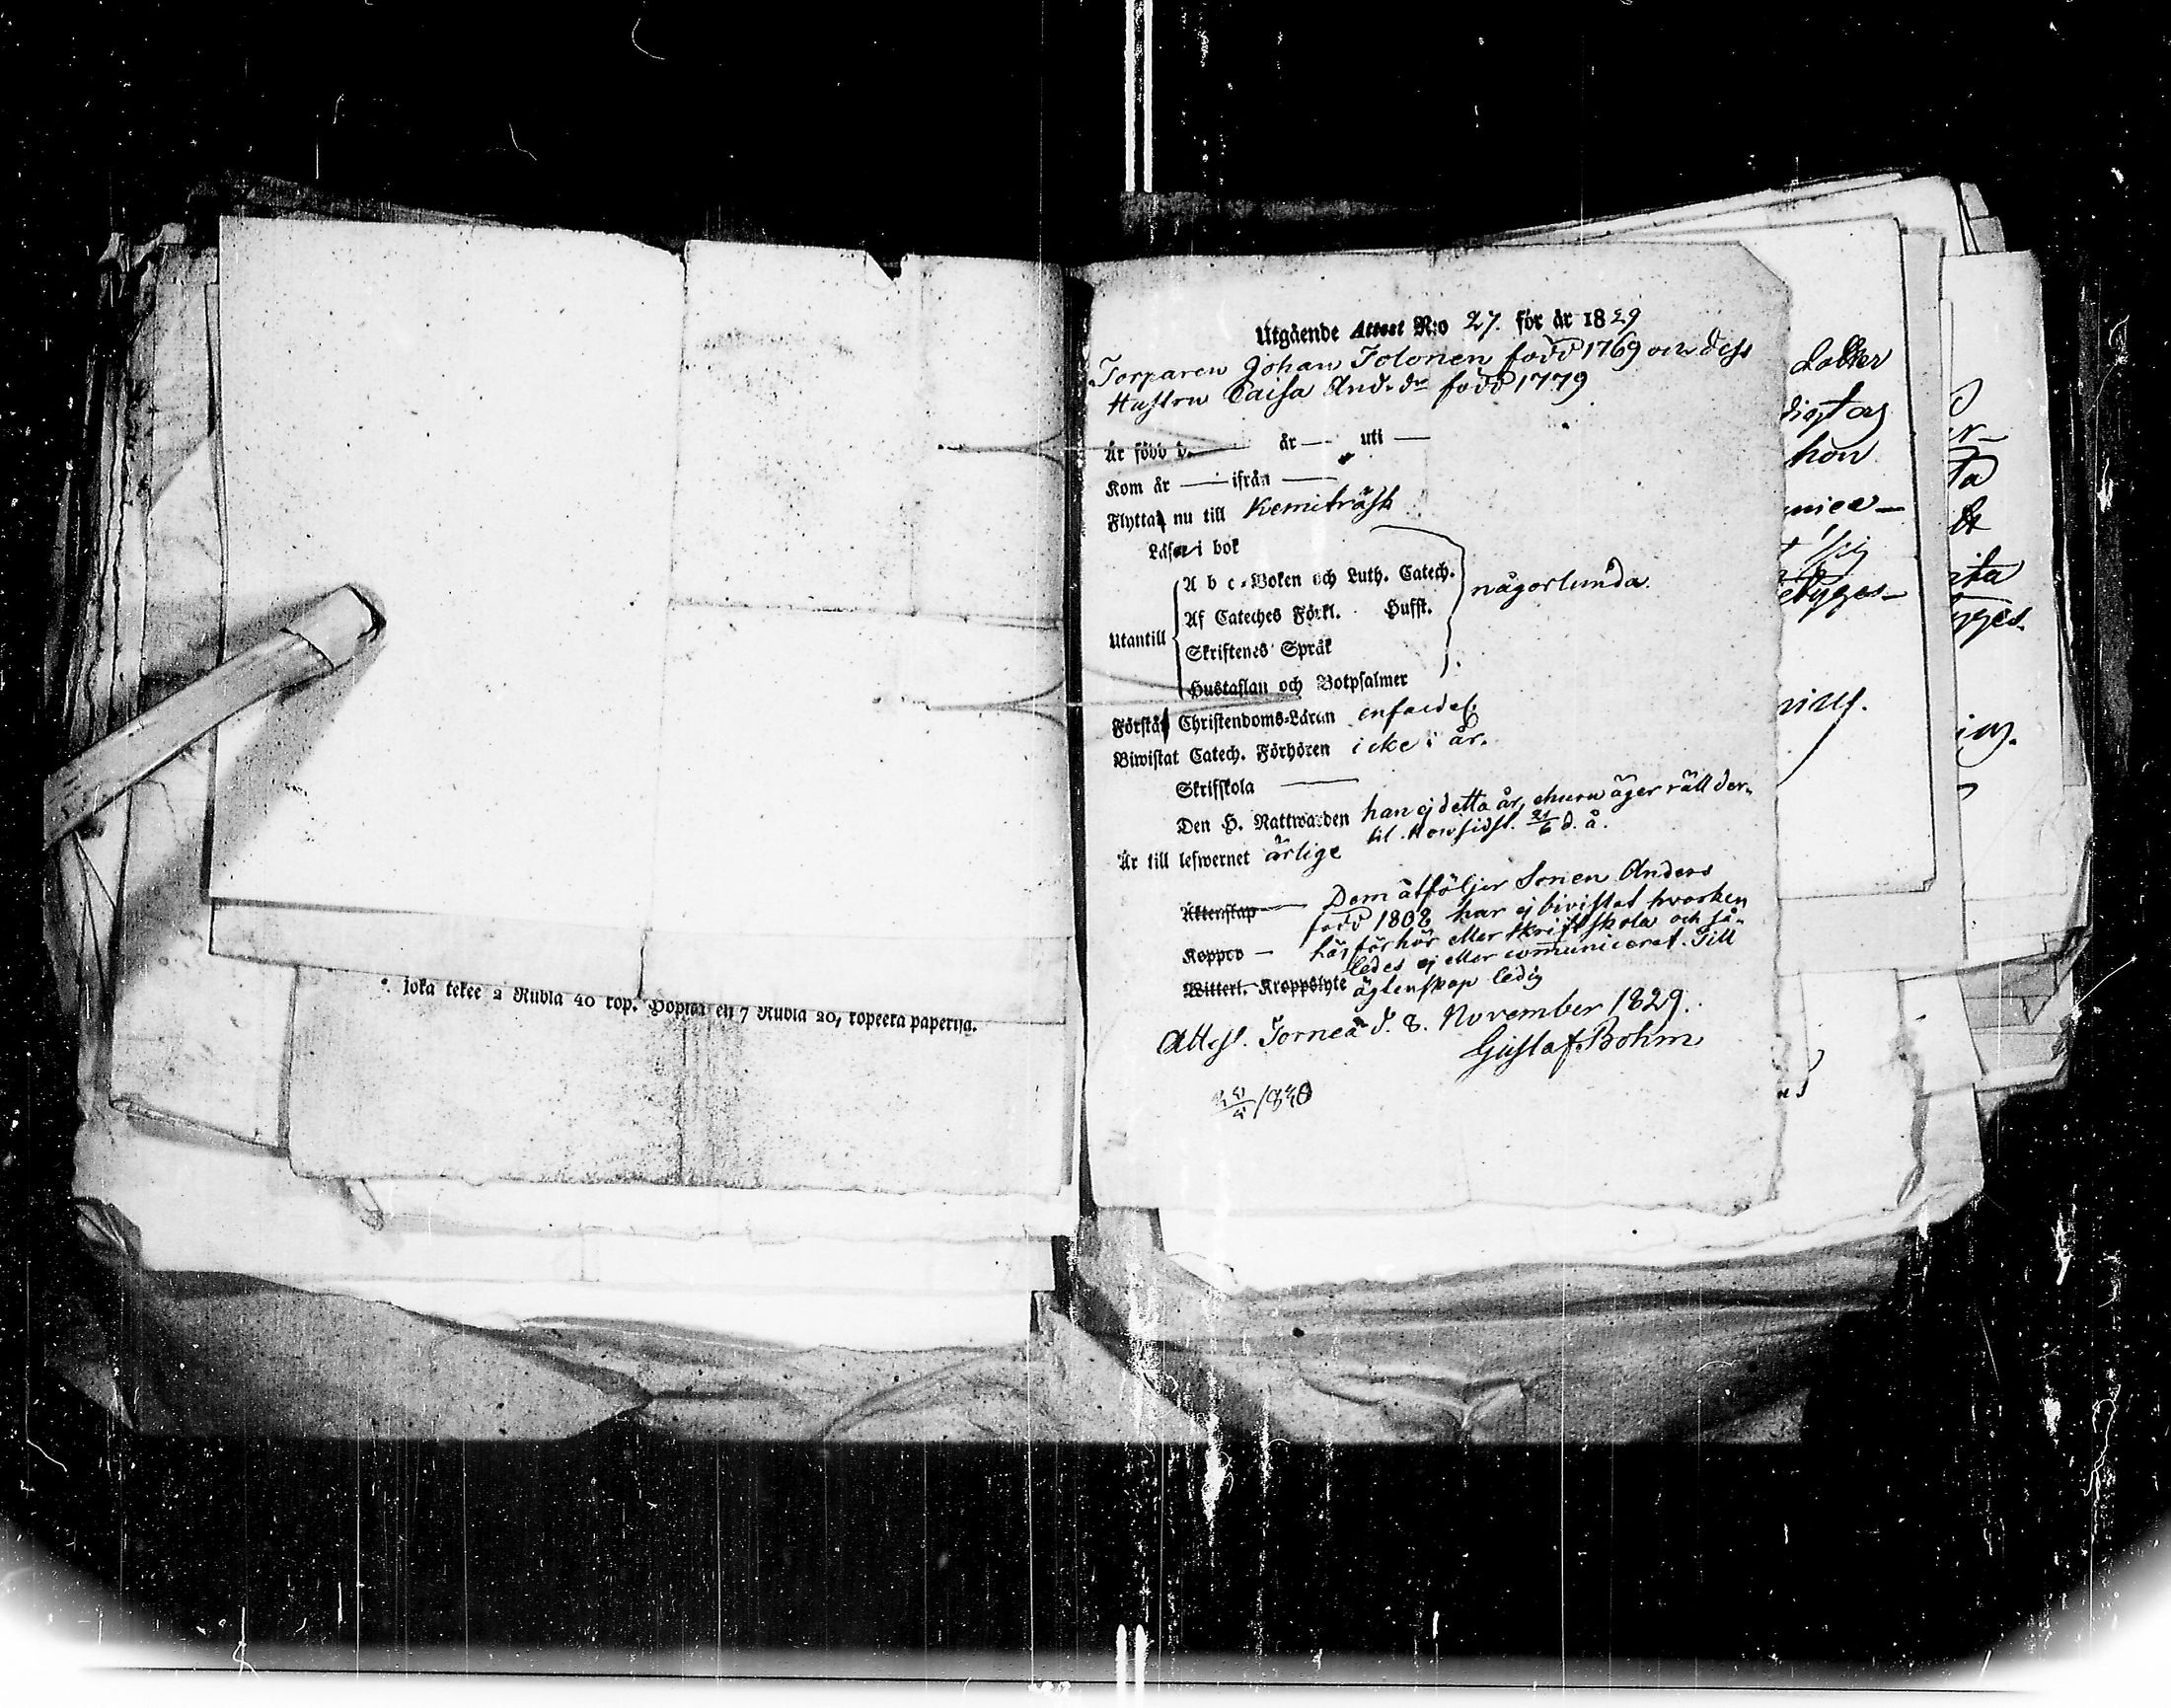 joka tekee 2 Rubla 40 kop. Hopiaa eli 7 Rubla 20, kopeeka paperisa.
Utgående Attest N:o 27. för år 1829
Torparen Johan Tolonen född 1769 och dess
Hustru Caisa And. dr född 1779
Är född d. — år — uti —
Kom år — ifrån —
Flytta nu till Kemiträsk
Läser i bok
A b c-Boken och Luth. Catech.
någorlunda.
Af Cateches Förkl. Hufst.
Utantill
Skriftenes Språk
Hustaflan och Botpsalmer
Förstår Christendoms-Läran enfaldel.
Biwistat Catech. Förhören icke i år.
Skriftskola —
Den H. Nattwarden han ej detta år, ehuru äger rätt der-
til. Hon sidst. 21/6 d. å.
Är till lefwernet ärlige
Äktenskap — Dem åtföljer Sonen Anders
född 1808 har ej bivistat hvarken
Koppor — läsförhör eller skriftskola och så-
ledes ej eller communicerat. Till
Witterl. Kroppslyte ägtenskap ledig
Attest. Torneå d. 8. November 1829.
Gustaf Bohm
1830
dotter
hon